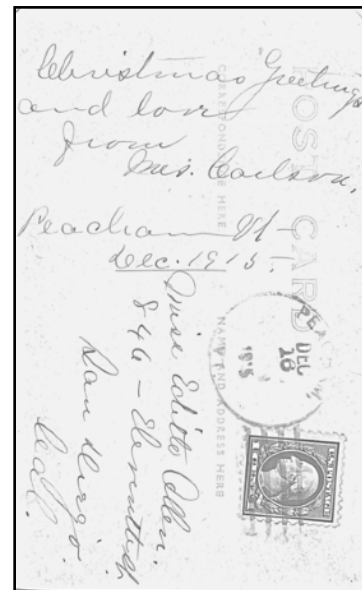 Christmas Greetings
and love
from
Mrs. Carlson,
Peacham Vt —
Dec. 1915.
POST CARD
CORRESPONDENCE HERE
NAME AND ADDRESS HERE
DEC
16
1915
Miss Edith Allen.
846 –
San Diego
Cal.
U.S. POSTAGE